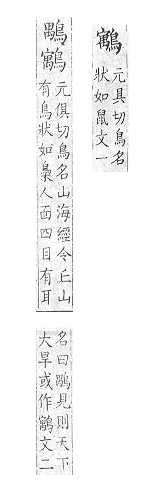 元具切鳥名
狀如鼠文一
元俱切鳥名山海經令丘山
有鳥狀如梟人面四目有耳
名曰見則天下
大旱或作文二